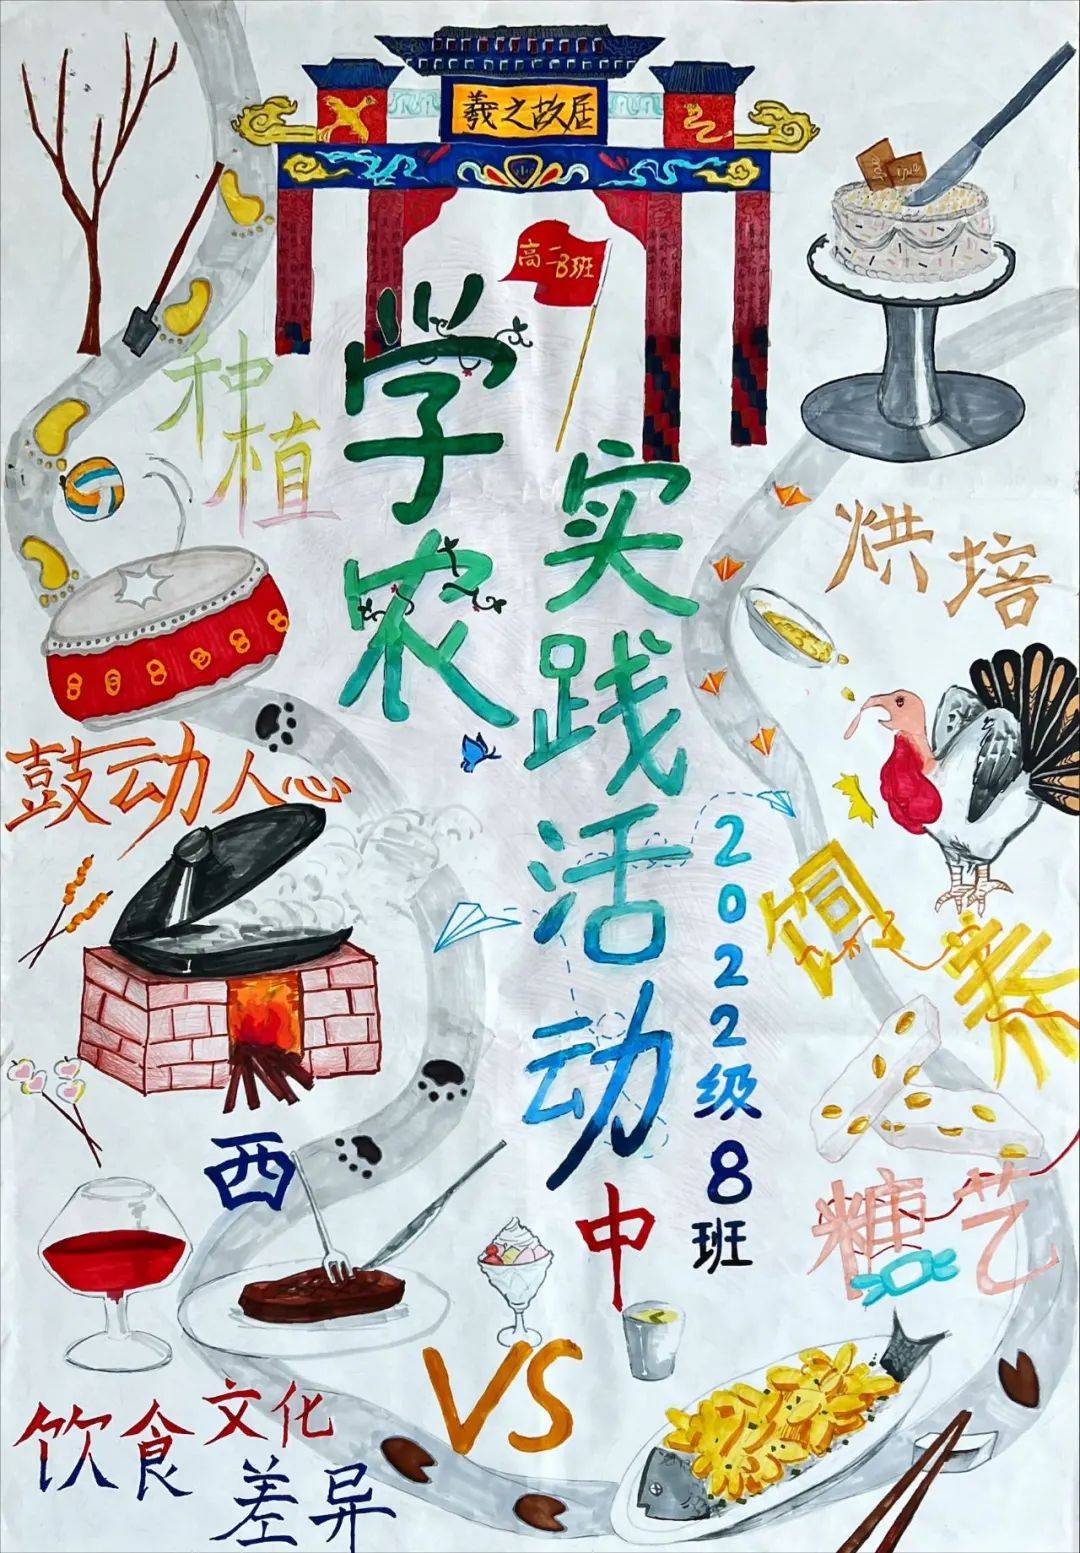 羲之故居
高一8班
学农
实践活动
2022级8班
种植
烘培
鼓动人心
饲养
糖艺
西
中
VS
饮食文化
差异